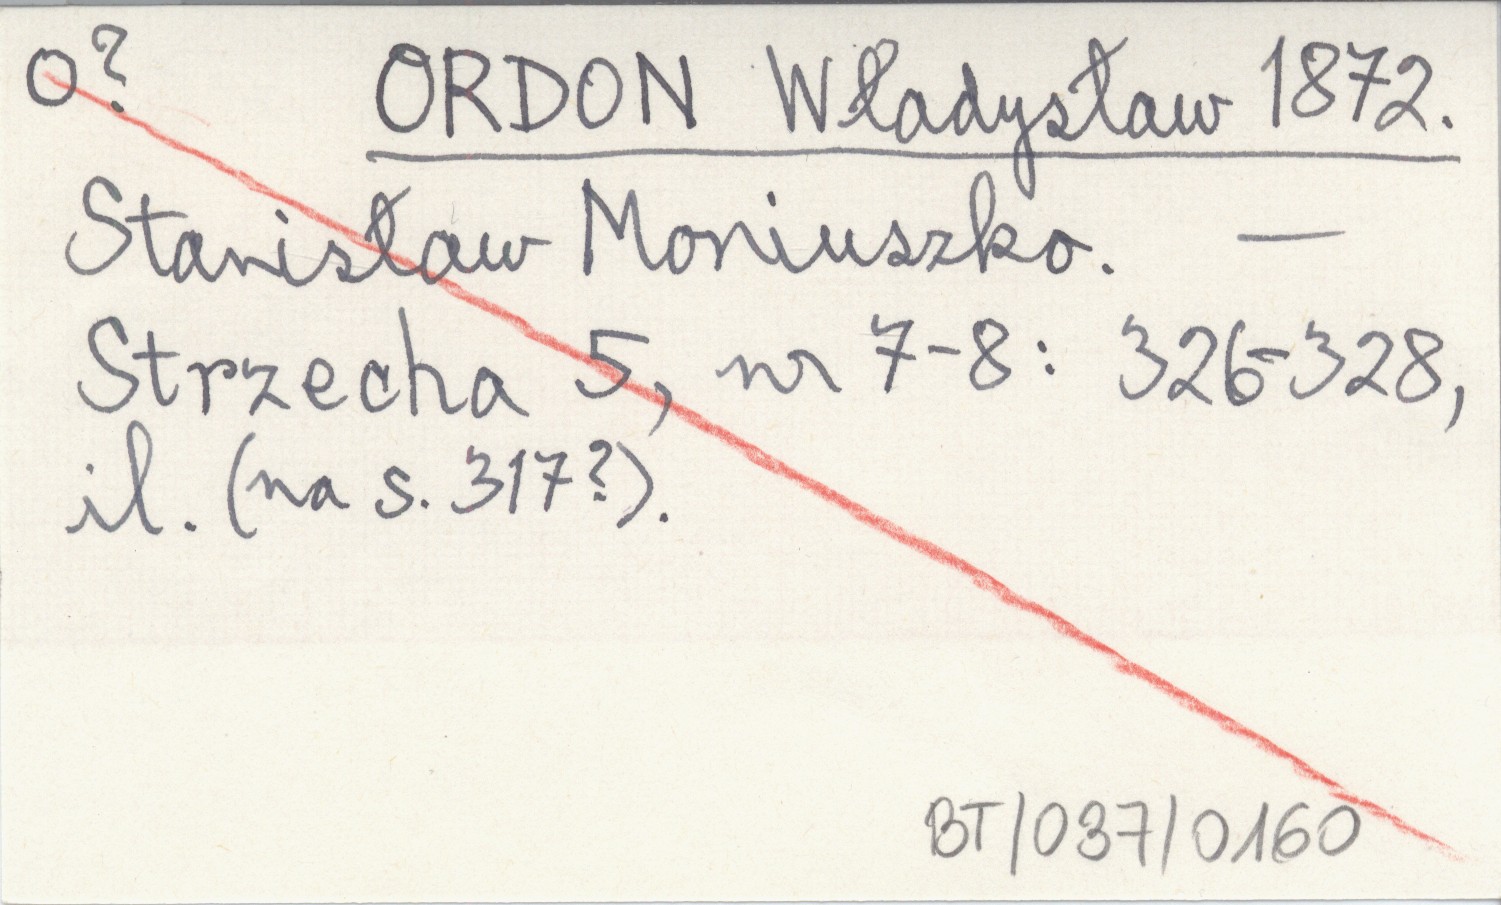 O? ORDON Władysław 1872.
Stanisław Moniuszko. —
Strzecha 5, nr 7-8: 326-328,
il. (na s. 317?).
BT/037/0160